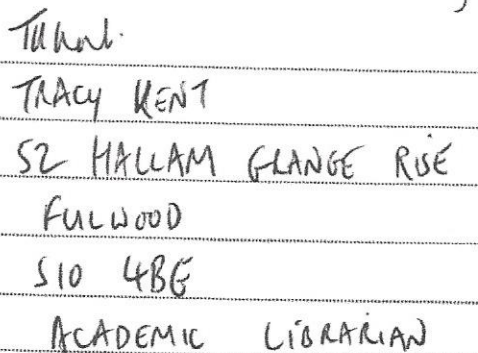 TRACY KENT
52 HALLAM GRANGE RISE
FULWOOD
S10 4BG
ACADEMIC LIBRARIAN